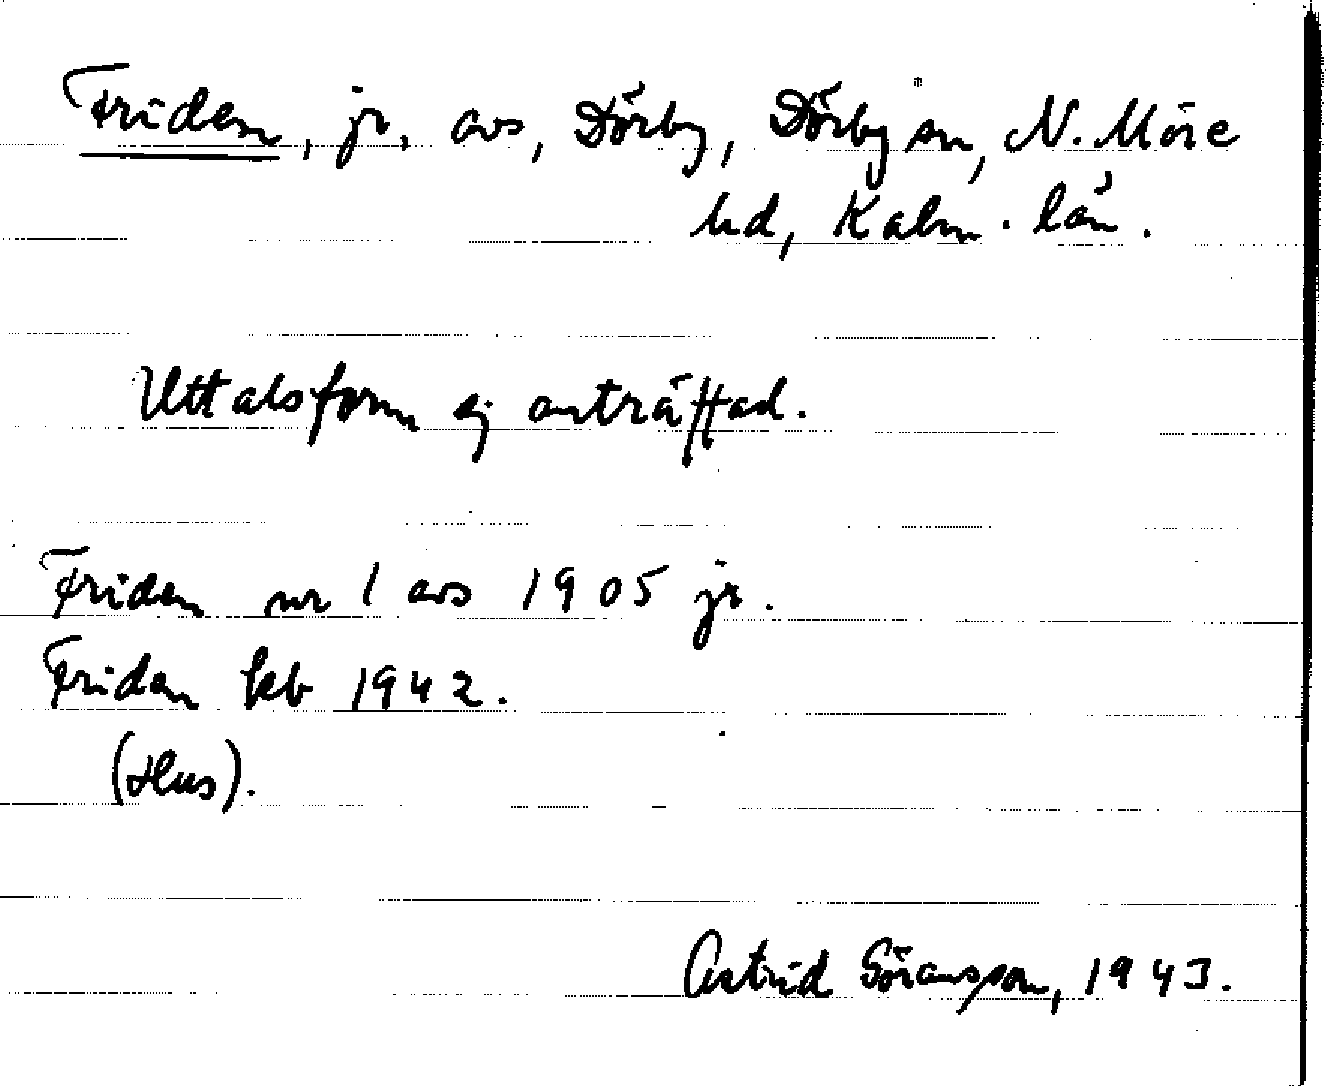 Friden, jr. avs, Dörby, Dörby sn, N. Möre
hd, Kalm. län.
Uttalsform ej anträffad.
Friden nr 1 avs 1905 jr.
Friden kb 1942.
(Hus).
Astrid Göransson, 1943.